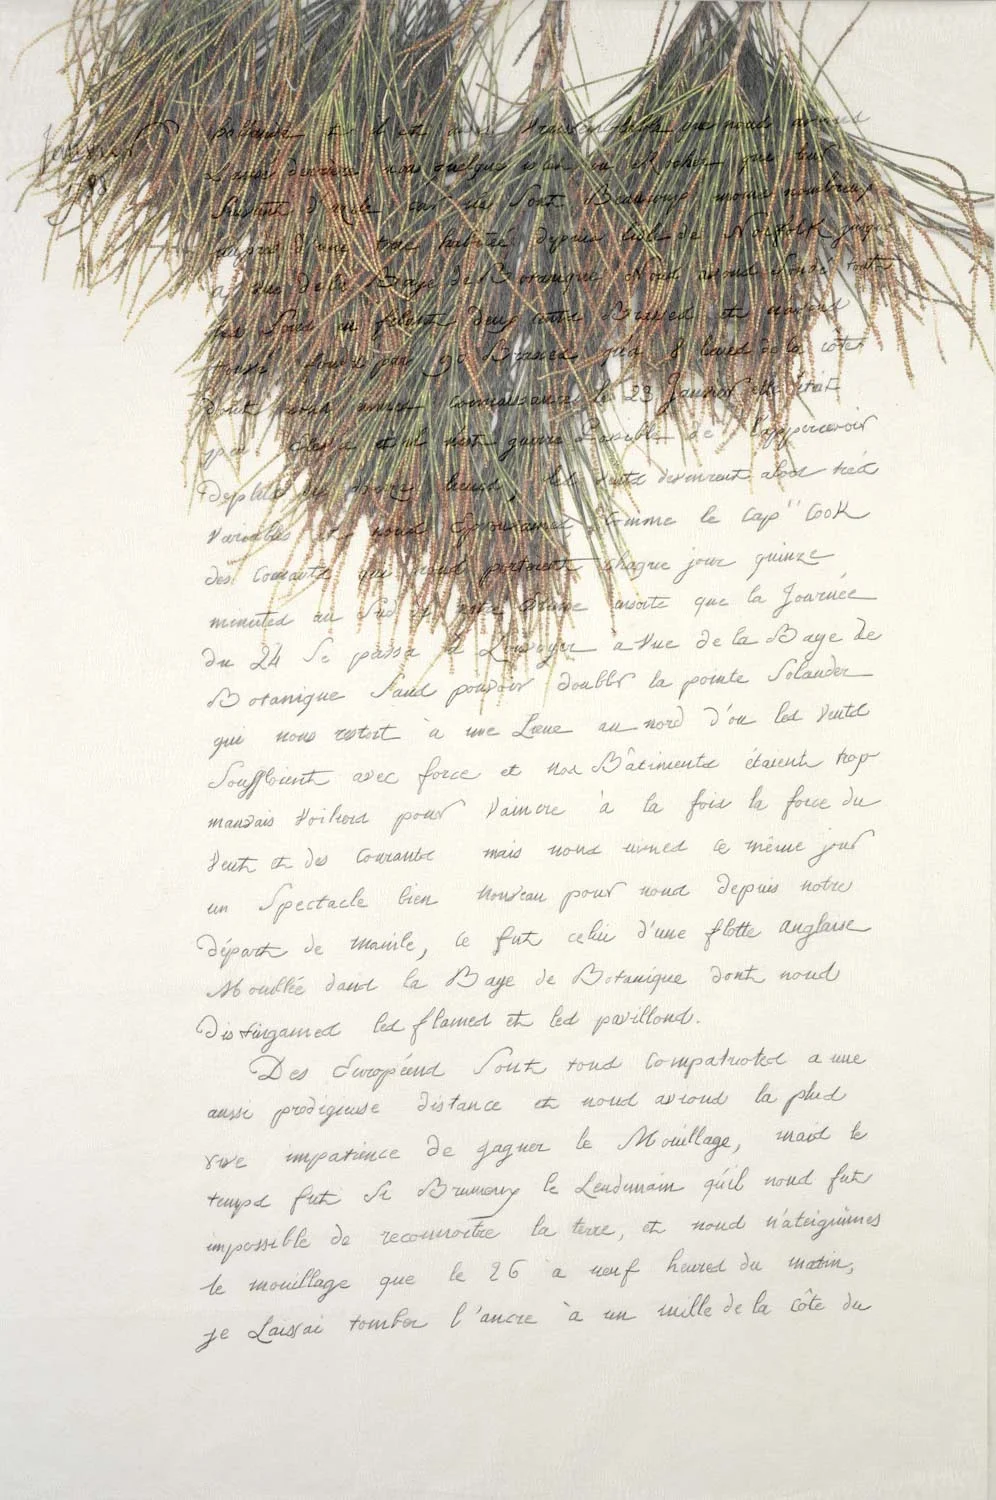 Janvier
1788
et il est aussi que nous avons
Laissé derriere nous quelques isles ou Rocher que
d'asile car ils sont Beaucoup moins nombreux
auprès d'une terre habitée depuis l'isle de Norfolk jusqu'a
vue de la Baye de Botanique Nous avons Sondé
Brasses et avions
fond par 90 Brasses qu'à 8 lieues de la côte
dont nous eumes connaissance le 23 Janvier elle était
peu élevée et il n'est guerre Possible de l'appercevoir
de plus de lieues, les vents devinrent alors très
variables et nous Eprouvames Comme le Cap" Cook
des Courants qui nous portoient chaque jour quinze
minutes au Sud de notre Estime ensorte que la Journée
du 24 Se passa à Louvoyer a vue de la Baye de
Botanique Sans pouvoir doubler la pointe Solander
qui nous restoit à une Lieue au nord d'ou les vents
Souffloient avec force et nos Bâtiments étaient trop
mauvais Voiliers pour Vaincre à la fois la force du
Vent et des Courants mais nous eumes ce même jour
un Spectacle bien Nouveau pour nous depuis notre
départ de manile, ce fut celui d'une flotte anglaise
Mouillée dans la Baye de Botanique dont nous
distingames les flames et les pavillons.
Des Européens Sont tous Compatriotes a une
aussi prodigieuse distance et nous avions la plus
vive impatience de gagner le Mouillage, mais le
temps fut Si Brumeux le Lendemain qu'il nous fut
impossible de reconnoitre la terre, et nous n'ateignîmes
le mouillage que le 26 a neuf heures du matin,
je Laissai tomber l'ancre à un mille de la côte du